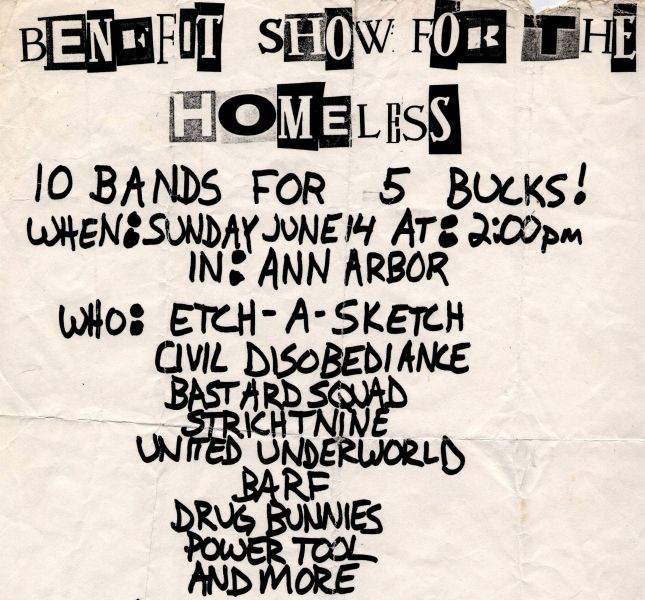 BENEFIT SHOW FOR THE
HOMELESS
10 BANDS FOR 5 BUCKS!
WHEN: SUNDAY JUNE 14 AT: 2:00pm
IN: ANN ARBOR
WHO: ETCH-A-SKETCH
CIVIL DISOBEDIANCE
BASTARD SQUAD
STRICHTNINE
UNITED UNDERWORLD
BARF
DRUG BUNNIES
POWER TOOL
AND MORE